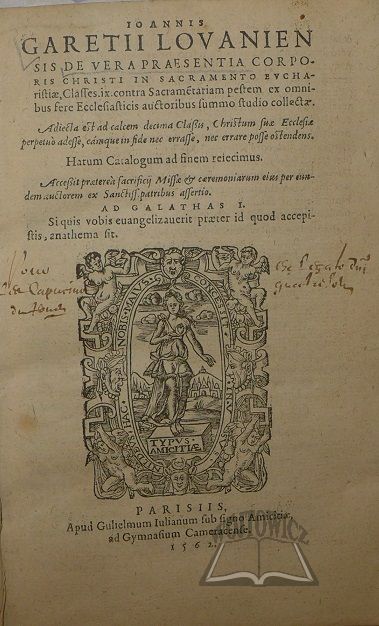 IOANNIS
GARETII LOVANIEN
SIS DE VERA PRAESENTIA CORPO-
RIS CHRISTI IN SACRAMENTO EVCHA-
ristiæ, Classes. ix. contra Sacramētariam pestem ex omni-
bus fere Ecclesiasticis auctoribus summo studio collectæ.
Adiecta est ad calcem decima Classis, Christum suæ Ecclesiæ
perpetuò adesse, eámque in fide nec errasse, nec errare posse ostendens.
Harum Catalogum ad finem reiecimus.
Accessit prætereà sacrificij Missæ & ceremoniarum eius per eun-
dem auctorem ex Sanctiss. patribus assertio.
AD GALATHAS I.
Si quis vobis euangelizauerit præter id quod accepi-
stis, anathema sit.
NOBIS MAIVS CONCESSIT
TYPVS
AMICITIÆ
PARISIIS,
Apud Gulielmum Iulianum sub signo Amicitiæ,
ad Gymnasium Cameracense.
1562.
WÓJTOWICZ